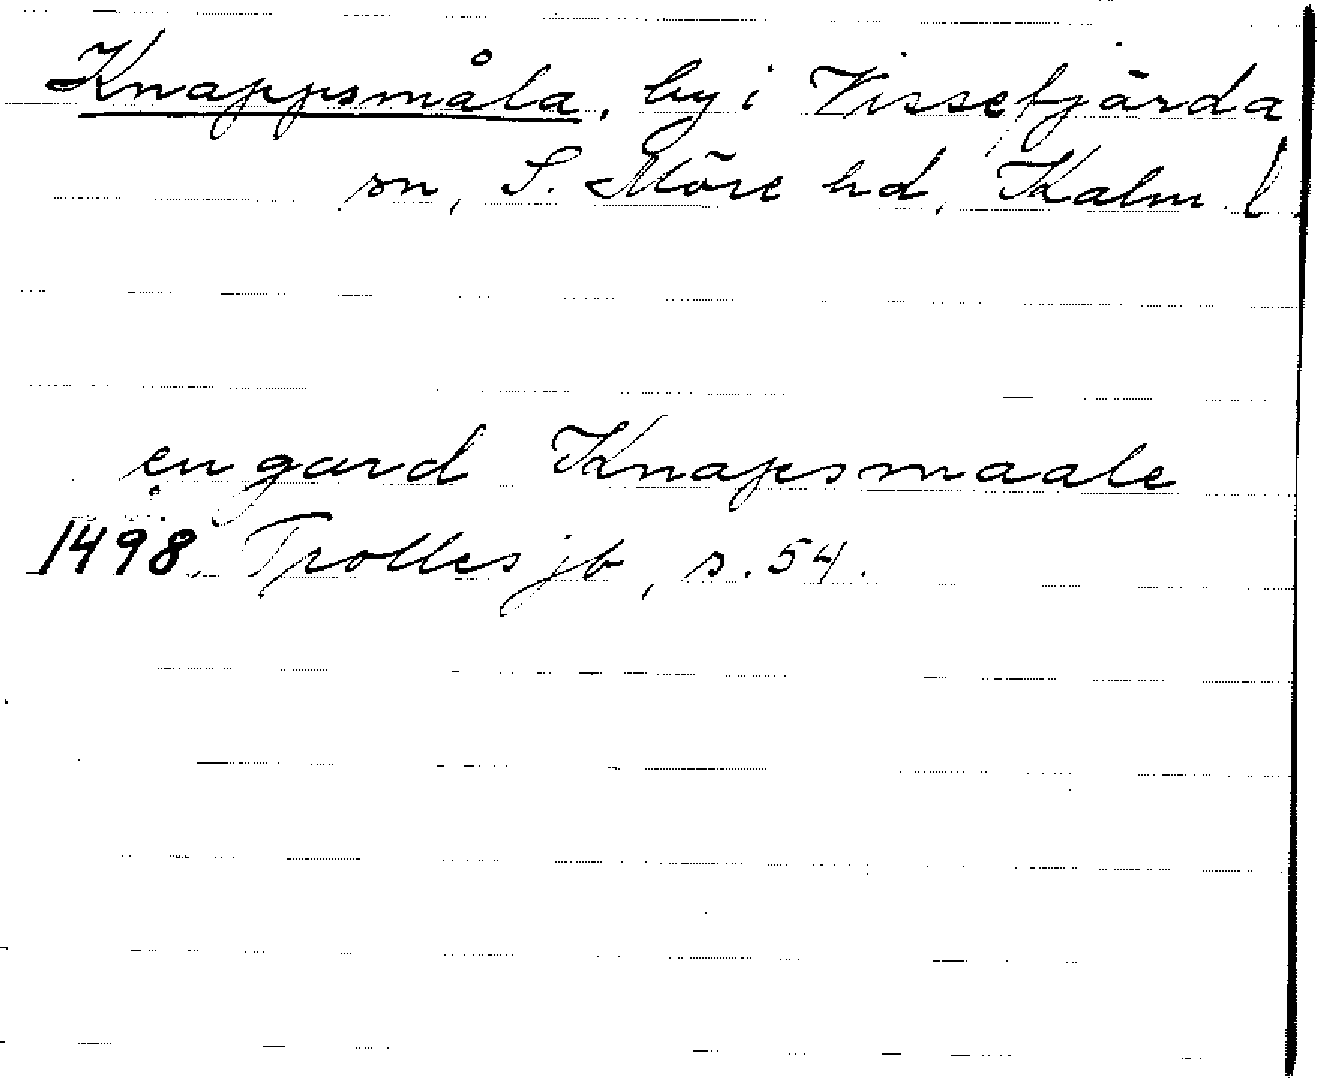 Knappsmåla, by i Vissefjärda
sn, S. Möre hd, Kalm l.
en gard Knapsmaale
1498. Trolles jb, s. 54.